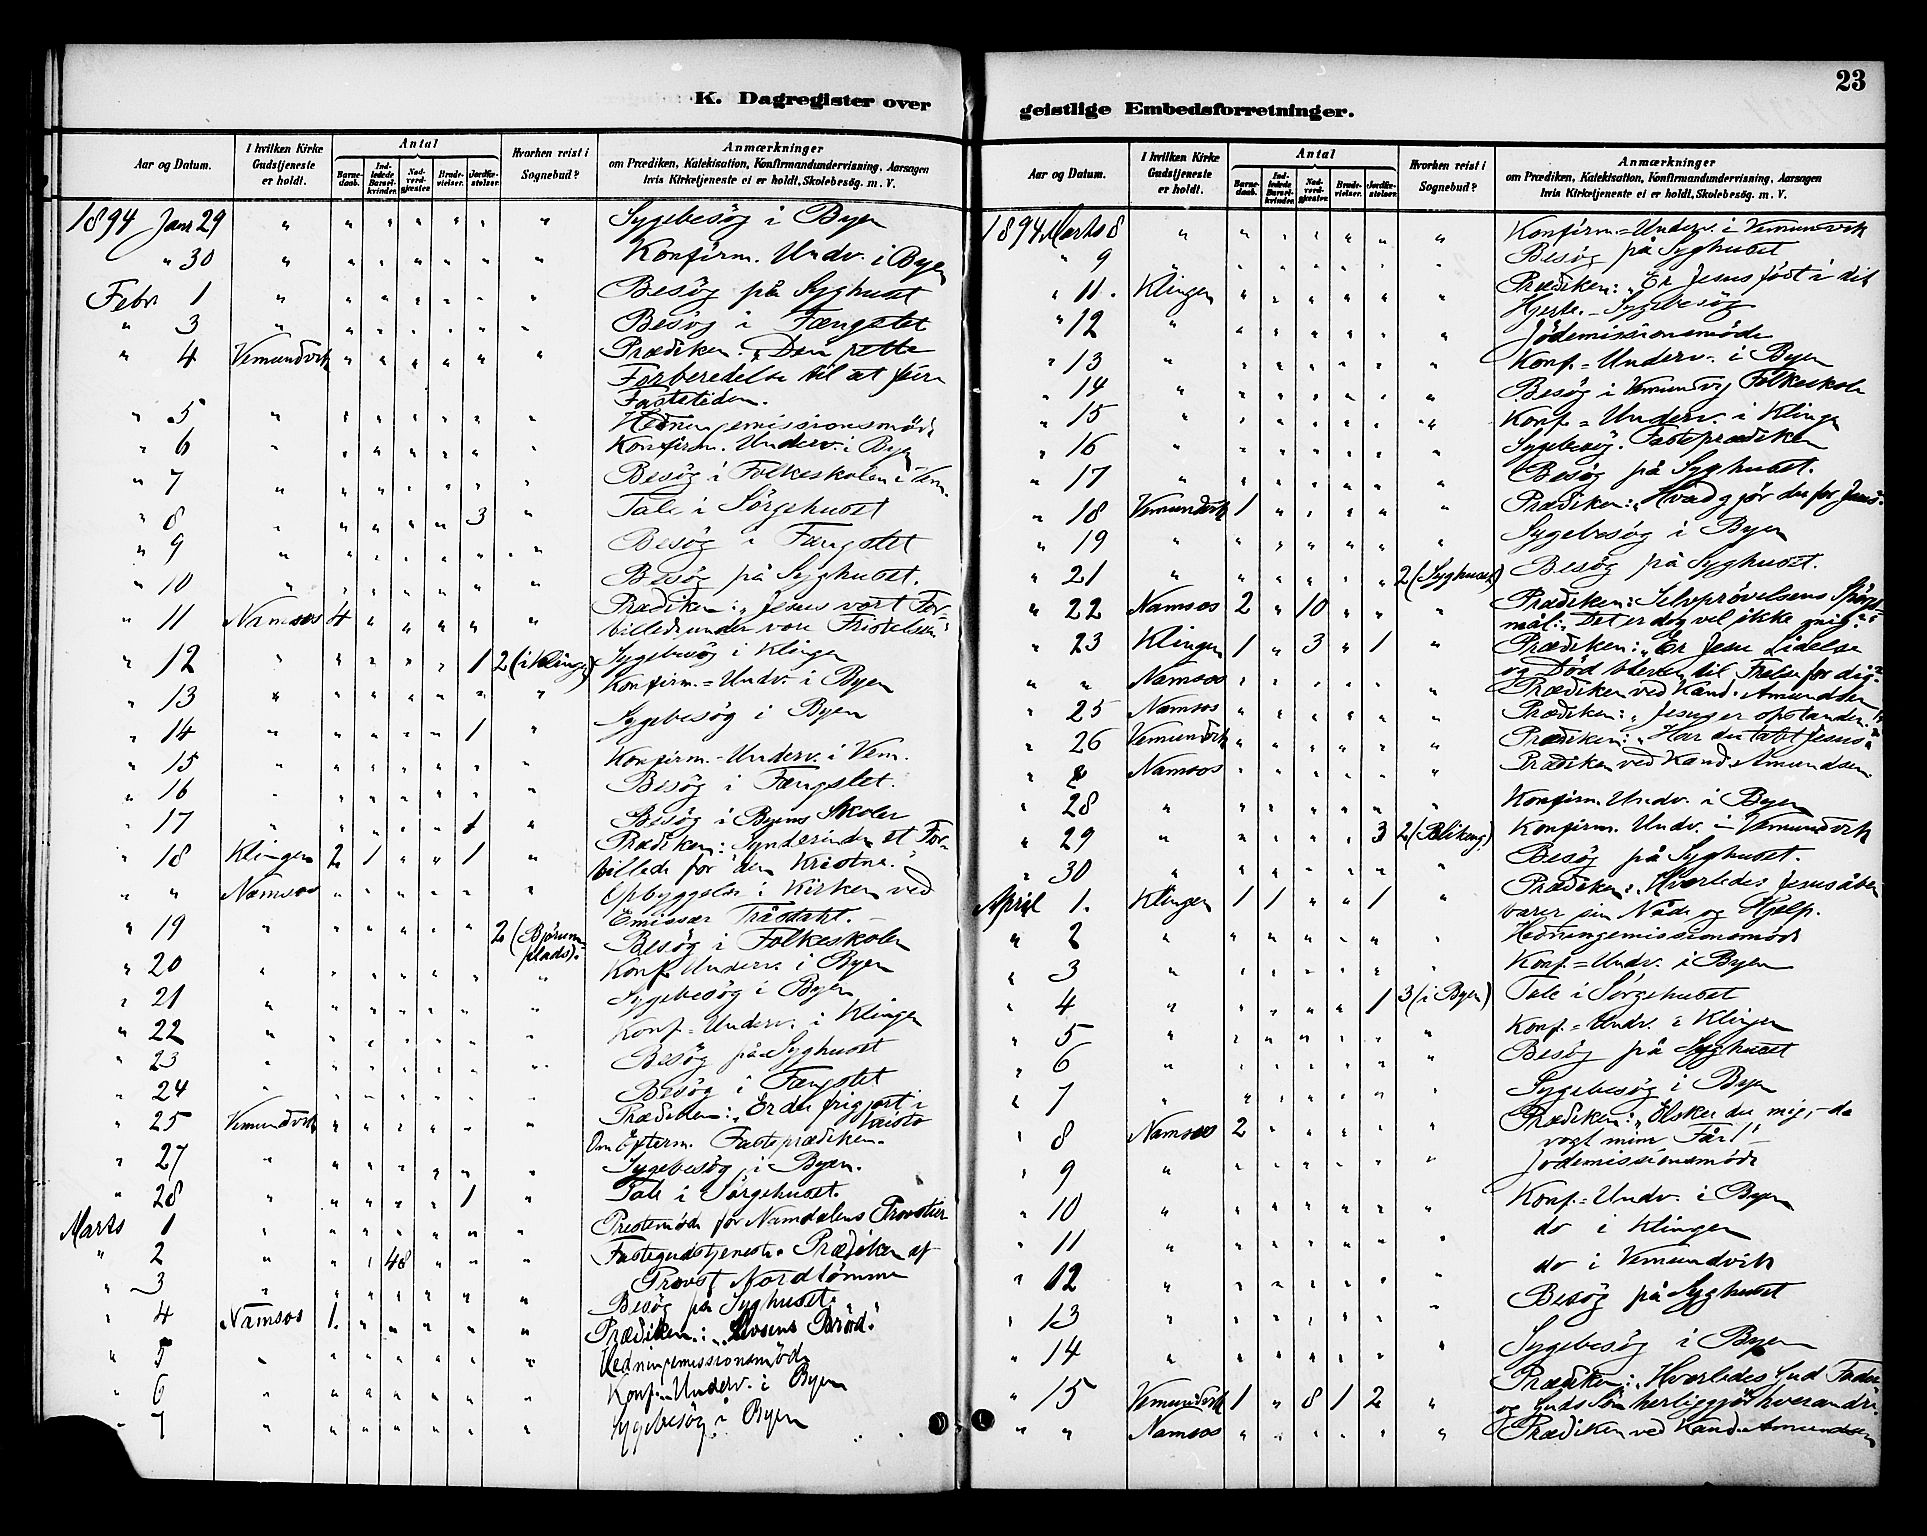 K. Dagregister over
Aar og Datum.
I hvilken Kirke Gudstjeneste er holdt.
Antal
Barnedaab.
Indledede Barselkvinder.
Nadverdgjester.
Brudevielser.
Jordfæstelser.
Hvorhen reist i Sognebud?
Anmærkninger
om Prædiken, Katekisation, Konfirmandundervisning, Aarsagen
hvis Kirketjeneste ei er holdt, Skolebesøg. m. V.
1894 Janr 29 " " " " " " " Sygebesög i Byen
" 30 " " " " " " " Konfirm. Undv. i Byen
Febr 1 " " " " " " " Besög på Syghuset
" 3 " " " " " " " Besög i Fængslet
" 4 Vemundvik " " " " " " Prædiken: "Den rette
Forberedelse til at feire
Fastetiden.
" 5 " " " " " " " Hedningemissionsmöde
" 6 " " " " " " " Konfirm. Underv. i Byen
" 7 " " " " " " " Besög i Folkeskolen i Vem.
" 8 " " " " " 3 " Tale i Sörgehuset
" 9 " " " " " " " Besög i Fængslet
" 10 " " " " " " " Besög på Syghuset.
" 11 Namsos 4 " " " " " Prædiken: "Jesus vort For-
billede under vore Fristelser"
" 12 " " " " " 1 2 (i Klingen) Sygebesög i Klingen
" 13 " " " " " " " Konfirm.=Undv. i Byen
" 14 " " " " " 1 " Sygebesög i Byen
" 15 " " " " " " " Konfirm.-Underv. i Vem.
" 16 " " " " " " " Besög i Fængslet.
" 17 " " " " " 1 " Besög i Byens Skoler
" 18 Klingen 2 1 " " 1 " Prædiken: Synderinden et For-
billede for den Kristne."
" " Namsos " " " " " " Opbyggelse i Kirken ved
Emissær Tråstahl.
" 19 " " " " " " 2 (Björum plads). Besög i Folkeskolen
" 20 " " " " " " " Konf. Underv. i Byen
" 21 " " " " " " " Sygebesög i Byen
" 22 " " " " " " " Konf.-Underv. i Klingen
" 23 " " " " " " " Besög på Syghuset
" 24 " " " " " " " Besög i Fængslet
" 25 Vemundvik " " " " " " Prædiken: "Er du frigjort i
Om Efterm. Fasteprædiken.
" 27 " " " " " " " Sygebesög i Byen.
" 28 " " " " " 1 " Tale i Sörgehuset.
Marts 1 " " " " " " " Prestemöde for Namdalens Provstier
" 2 " " " 48 " " " Fastegudstjeneste. Prædiken af
Provst Nordtömme
" 3 " " " " " " " Besög på Syghuset.
" 4 Namsos 1. " " " " " Prædiken: "Livsens Bröd"
" 5 " " " " " " " Hedningemissionsmöde
" 6 " " " " " " " Konf.=Underv. i Byen
" 7 " " " " " " " Sygebesög i Byen
geistlige Embedsforretninger.
23
Aar og Datum.
I hvilken Kirke Gudstjeneste er holdt.
Antal
Barnedaab.
Indledede Barselkvinder.
Nadverdgjester.
Brudevielser.
Jordfæstelser.
Hvorhen reist i Sognebud?
Anmærkninger
om Prædiken, Katekisation, Konfirmandundervisning, Aarsagen
hvis Kirketjeneste ei er holdt, Skolebesøg. m. V.
1894 Marts 8 " " " " " " " Konfirm.=Underv. i Vemundvik
" 9 " " " " " " " Besög på Syghuset
" 11. Klingen " " " " " " Prædiken: "Er Jesus født i dit
Hjerte. - Sygebesög
" 12 " " " " " " " Jödemissionsmöde
" 13 " " " " " " " Konf.=Underv. i Byen
" 14 " " " " " " " Besög i Vemundvig Folkeskole
" 15 " " " " " " " Konf.=Underv. i Klingen
" 16 " " " " " " " Sygebesög. Fasteprædiken
" 17 " " " " " " " Besög på Syghuset.
" 18 Vemundvik 1 " " " " " Prædiken: "Hvad gjör du for Jesus.
" 19 " " " " " " " Sygebesög i Byen
" 21 " " " " " " 2 (Syghuset) Besög på Syghuset.
" 22 Namsos 2 " 10 " " " Prædiken: Selvprövelsens Spörgs-
mål: "Det er dog vel ikke mig?"
" 23 Klingen 1 " 3 " 1 " Prædiken: "Er Jesu Lidelse
og Död bleven til Frelse for dig?"
" " Namsos " " " " " " Prædiken ved Kand. Amundsen
" 25 Namsos " " " " " " Prædiken: "Jesus er opstanden!"
" 26 Vemundvik " " " " " " Prædiken: "Har du tabt Jesus"
" " Namsos " " " " " " Prædiken ved Kand. Amundsen.
" 28 " " " " " " " Konfirm. Undv. i Byen
" 29 " " " " " 3 2 Konfirm. Undv. i Vemundvik
" 30 " " " " " " " Besög på Syghuset.
April 1. Klingen 1 1 " " 1 " Prædiken: "Hvorledes Jesus åben-
barer sin Nåde og Hjelp.
" 2 " " " " " " " Hedningemissionsmöde
" 3 " " " " " " " Konf.=Undv. i Byen
" 4 " " " " " 1 3 (i Byen) Tale i Sörgehuset
" 5 " " " " " " " Konf.=Undv. i Klingen
" 6 " " " " " " " Besög på Syghuset
" 7 " " " " " " " Sygebesög i Byen
" 8 Namsos 2 " " " " " Prædiken: "Elsker du mig, - da
vogt mine Får!" -
" 9 " " " " " " " Jödemissionsmöde
" 10 " " " " " " " Konf.=Undv. i Byen
" 11 " " " " " " " do i Klingen
" 12 " " " " " " " do i Vemundvik
" 13 " " " " " " " Besög på Syghuset
" 14 " " " " " " " Sygebesög i Byen
" 15 Vemundvik 1 " 8 1 2 " Prædiken: "Hvorledes Gud Fader
og Guds Sön herliggjör hverandre.
" " Namsos " " " " " " Prædiken ved Kand. Amundsen